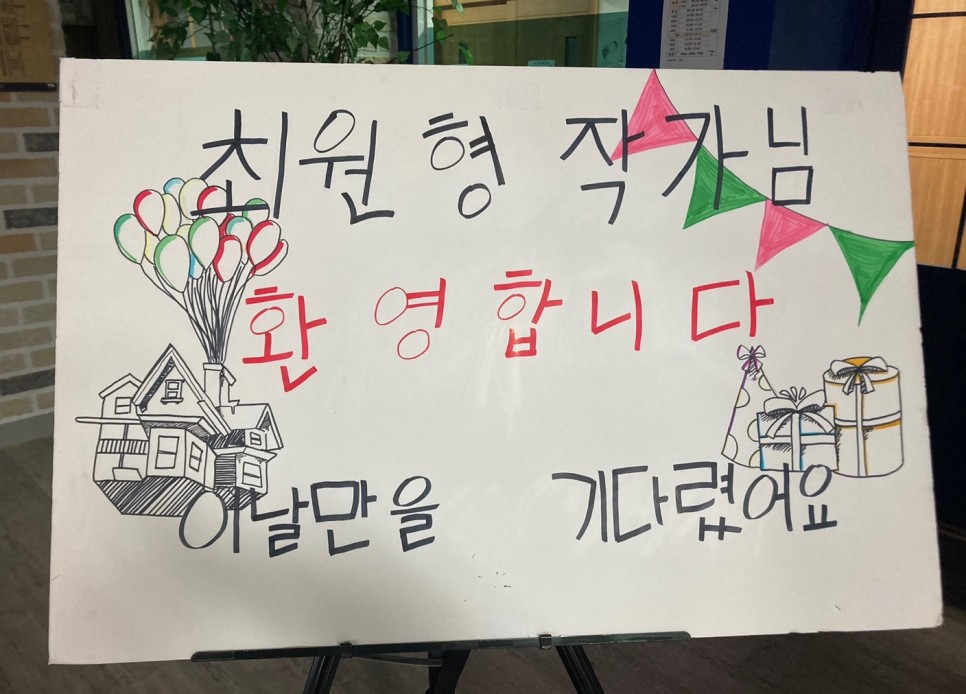 최원형 작가님
환영합니다
이날만을 기다렸어요